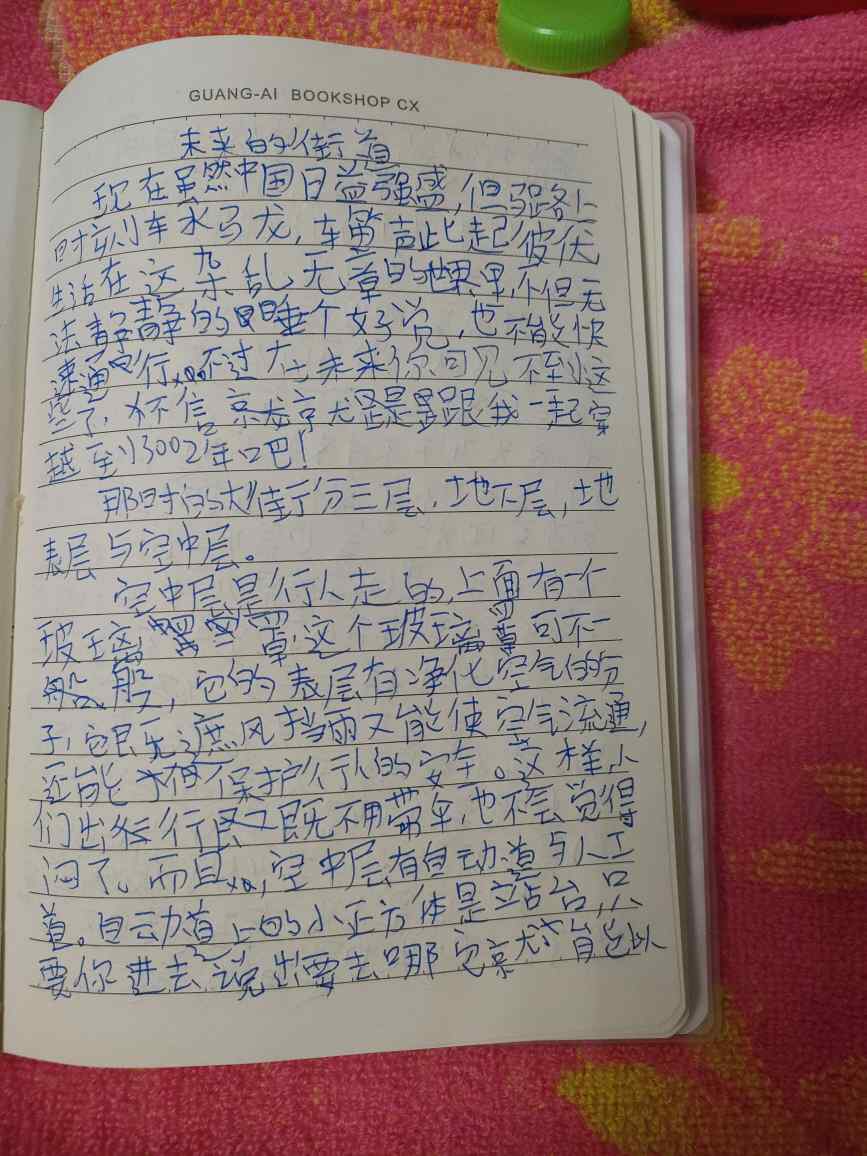 GUANG-AI BOOKSHOP CX
未来的街道
现在虽然中国日益强盛,但马路上
时刻车水马龙,车笛声此起彼伏
生活在这杂乱无章的世界里,不但无
法静静的睡个好觉,也不能快
速通行。不过在未来你可见不到这
些了,不信就跟我一起穿
越至3002年吧!
那时的大街分三层,地下层,地
表层与空中层。
空中层是行人走的,上面有一个
玻璃罩,这个玻璃罩可不一
般,它的表层有净化空气的分
子,它既无遮风挡雨又能使空气流通,
还能保护行人的安全。这样人
们出行既不用带伞,也不会觉得
闷了。而且,空中层有自动道与人工
道。自动道上的小正方体是站台,只
要你进去说出要去哪它就可以